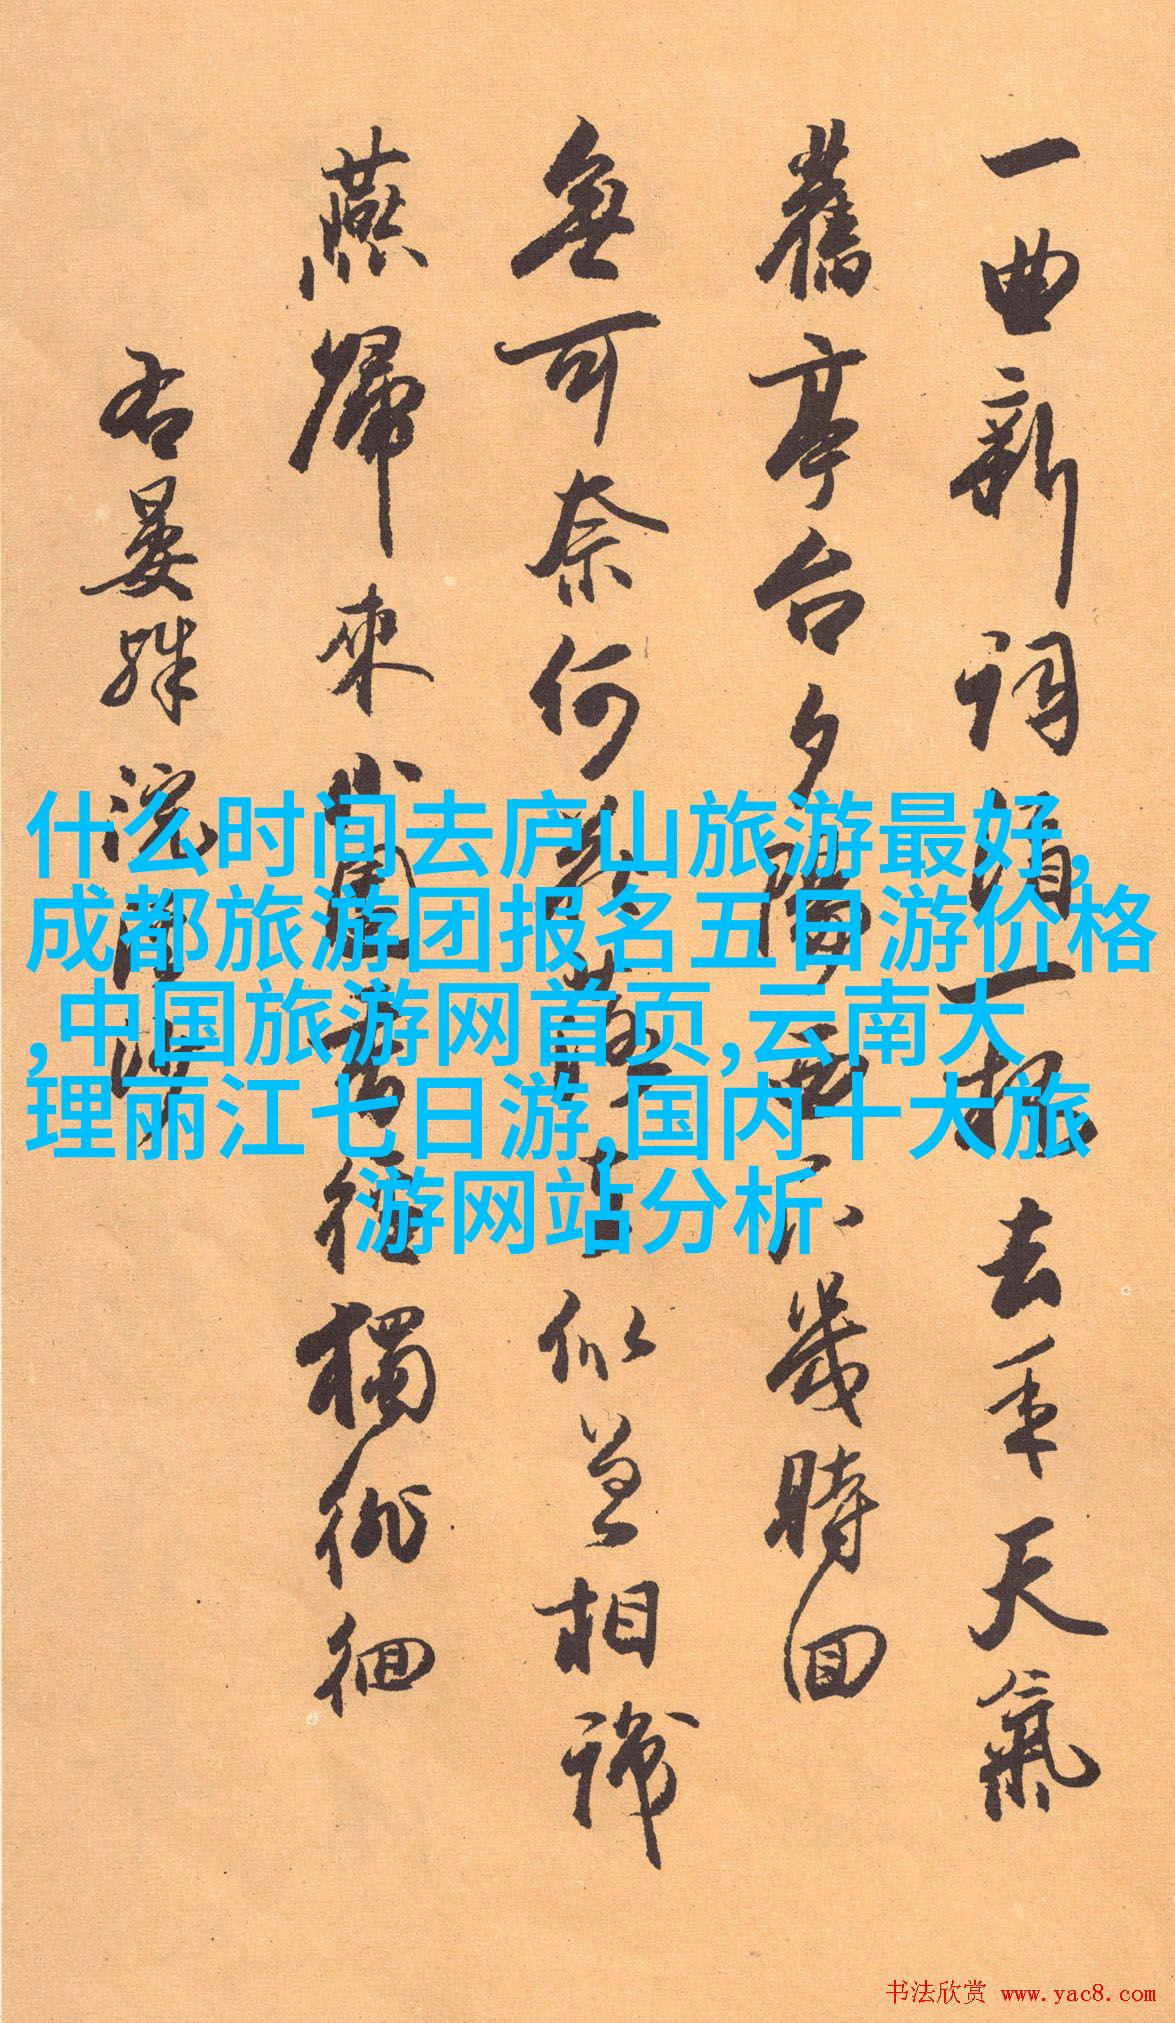 一曲新詞酒一杯去年天氣
舊亭台夕陽西下幾時回
無可奈何花落去似曾相識
燕歸來小園香徑獨徘徊
右晏殊浣溪沙
什么时间去庐山旅游最好,
成都旅游团报名五日游价格
,中国旅游网首页,云南大
理丽江七日游,国内十大旅
游网站分析
书法欣赏 www.yac8.com